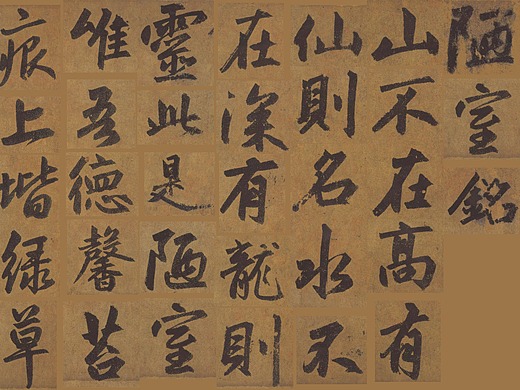 陋室銘
山不在高有
仙則名水不
在深有龍則
靈此是陋室
唯吾德馨苔
痕上堦绿草